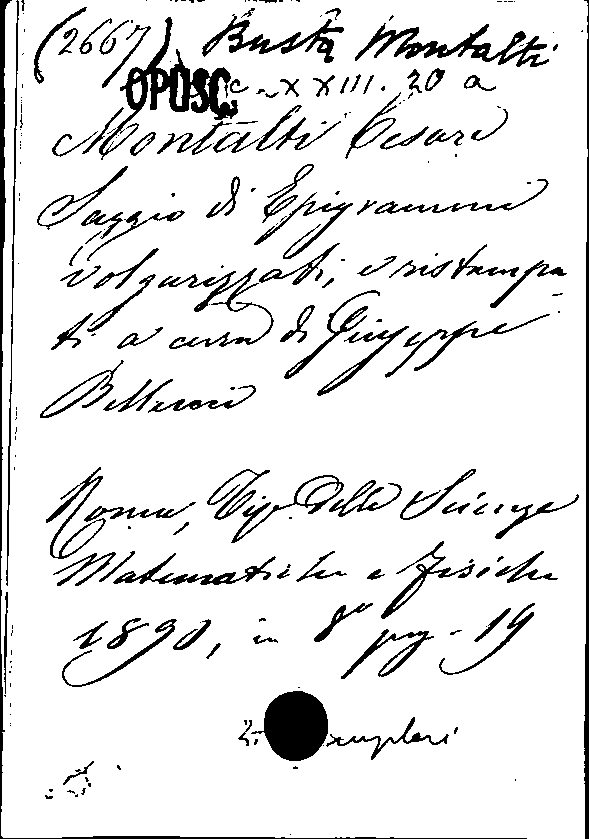 (2667) Busta Montalti
OPUSC. c-XXIII. 20 a
Montalti Cesare
Saggio di Epigrammi
volgarizzati, e ristampa-
ti a cura di Giuseppe
Bellucci
Roma, Tip. delle Scienze
Matematiche e Fisiche
1890, in 8° pag. 19
2 esemplari